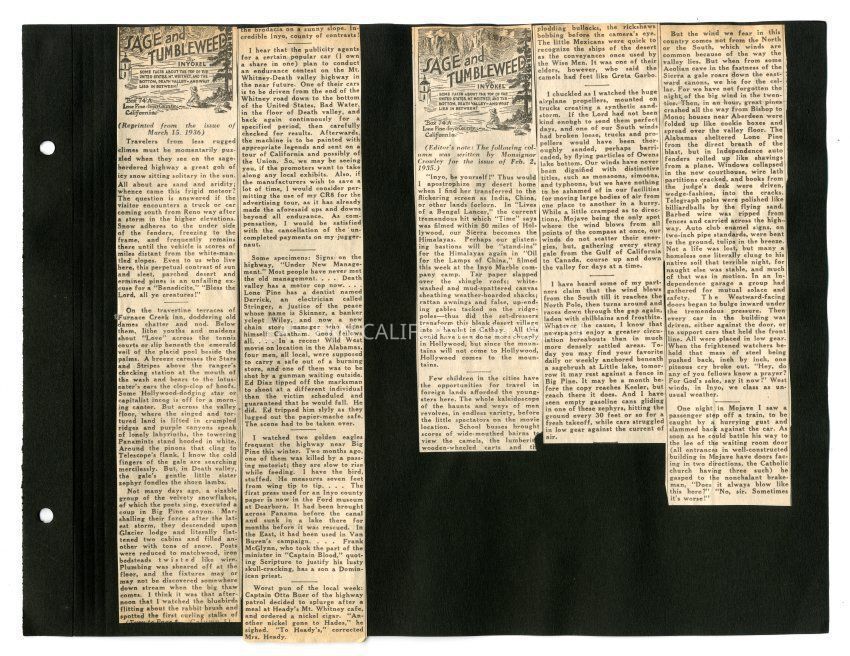 SAGE and
TUMBLEWEED
INYOKEL
SOME FACTS ABOUT THE TOP OF THE
UNITED STATES, MT. WHITNEY, AND THE
BOTTOM, DEATH VALLEY - AND WHAT
LIES IN BETWEEN!
Box 74A
Lone Pine - Inyo County -
California -
(Reprinted from the issue of
March 15, 1936)
Travelers from less rugged
climes must be momentarily puz-
zled when they see on the sage-
bordered highway a great gob of
icy snow sitting solitary in the sun.
All about are sand and aridity;
whence came this frigid motor?
The question is answered if the
visitor encounters a truck or car
coming south from Reno way after
a storm in the higher elevations.
Snow adheres to the under side
of the fenders, freezing to the
frame, and frequently remains
there until the vehicle is scores of
miles distant from the white-man-
tled slopes. Even to us who live
here, this perpetual contrast of sun
and sleet, parched desert and
ermined pines is an unfailing ex-
cuse for a "Benedicite," "Bless the
Lord, all ye creatures!"
On the travertine terraces of
Furnace Creek Inn, doddering old
dames chatter and nod. Below
them, lithe youths and maidens
shout "Love" across the tennis
courts or slip beneath the emerald
veil of the placid pool beside the
palms. A breeze caresses the Stars
and Stripes above the ranger's
checking station at the mouth of
the wash and bears to the lotus-
eater's ears the clop-clop of hoofs.
Some Hollywood-dodging star or
capitalist incog is off for a morn-
ing canter. But across the valley
floor, where the singed and tor-
tured land is lifted in crumpled
ridges and purple canyons speak
of lonely labyrinths, the towering
Panamints stand hooded in white.
Around the pinons that cling to
Telescope's flank, I know the cold
fingers of the gale are searching
mercilessly. But, in Death valley,
the gale's gentle little sister
zephyr fondles the shorn lambs.
Not many days ago, a sizable
group of the velvety snowflakes,
of which the poets sing, executed a
coup in Big Pine canyon. Mar-
shalling their forces after the lat-
est storm, they descended upon
Glacier lodge and literally flat-
tened two cabins and filled an-
other with tons of snow. Posts
were reduced to matchwood, iron
bedsteads twisted like wire.
Plumbing was sheared off at the
floor, and the fixtures may or
may not be discovered somewhere
down stream when the big thaw
comes. I think it was that after-
noon that I watched the bluebirds
flitting about the rabbit brush and
spotted the first curling stalks of
the brodaeia on a sunny slope. In-
credible Inyo, county of contrasts!
I hear that the publicity agents
for a certain popular car (I own
a share in one) plan to conduct
an endurance contest on the Mt.
Whitney-Death valley highway in
the near future. One of their cars
is to be driven from the end of the
Whitney road down to the bottom
of the United States, Bad Water,
in the floor of Death Valley, and
back again continuously for a
specified period, then carefully
checked for results. Afterwards,
the machine is to be painted with
appropriate legends and sent on a
tour of California and possibly of
the Union. So, we may be seeing
you, if the promoters want to take
along any local exhibits. Also, if
the manufacturers wish to save a
lot of time, I would consider per-
mitting the use of my CR6 for the
advertising tour, as it has already
made the aforesaid ups and downs
beyond all endurance. As com-
pensation, I would be satisfied
with the cancellation of the un-
completed payments on my jugger-
naut.
Some specimens: Signs on the
highway, "Under New Manage-
ment." Most people have never met
the old management. . . . Death
valley has a motor cop now. . . .
Lone Pine has a dentist named
Derrick, an electrician called
Stringer, a justice of the peace
whose name is Skinner, a banker
yclept Wiley, and now a new
chain store manager who signs
himself Cheatham. Good fellows
all. . . . In a recent Wild West
movie on location in the Alabamas,
four men, all local, were supposed
to carry a safe out of a burning
store, and one of them was to be
shot by a gunman waiting outside.
Ed Dixe tipped off the marksman
to shoot at a different individual
than the victim scheduled and
guaranteed that he would fall. He
did. Ed tripped him slyly as they
lugged out the papier-mache safe.
The scene had to be taken over.
I watched two golden eagles
frequent the highway near Big
Pine this winter. Two months ago,
one of them was killed by a pass-
ing motorist; they are slow to rise
while feeding. I have the bird,
stuffed. He measures seven feet
from wing tip to tip. . . . The
first press used for an Inyo county
paper is now in the Ford museum
at Dearborn. It had been brought
across Panama before the canal
and sunk in a lake there for
months before it was rescued. In
the East, it had been used in Van
Buren's campaign. . . . Frank
McGlynn, who took the part of the
minister in "Captain Blood," quot-
ing Scripture to justify his lusty
skull-cracking, has a son a Domin-
ican priest.
Worst pun of the local week:
Captain Otto Buer of the highway
patrol decided to splurge after a
meal at Heady's Mt. Whitney cafe,
and ordered a nickel cigar. "An-
other nickel gone to Hades," he
sighed. "To Heady's," corrected
Mrs. Heady.
SAGE and
TUMBLEWEED
INYOKEL
SOME FACTS ABOUT THE TOP OF THE
UNITED STATES, MT. WHITNEY, AND THE
BOTTOM, DEATH VALLEY - AND WHAT
LIES IN BETWEEN!
Box 74A
Lone Pine - Inyo County -
California -
(Editor's note: The following col-
umn was written by Monsignor
Crowley for the issue of Feb. 2,
1935.)
"Inyo, be yourself!" Thus would
I apostrophize my desert home
when I find her transferred to the
flickering screen as India, China,
or other lands forlorn. In "Lives
of a Bengal Lancer," the current
tremendous hit which "Time" says
was filmed within 50 miles of Hol-
lywood, our Sierra becomes the
Himalayas. Perhaps our glisten-
ing bastions will be "standins"
for the Himalayas again in "Oil
for the Lamps of China," filmed
this week at the Inyo Marble com-
pany camp. Tar paper slapped
over the shingle roofs; white-
washed and mud-spattered canvas
sheathing weather-boarded shacks;
rattan awnings and false, up-end-
ing gables tacked on the ridge-
poles—thus did the set-dressers
transform this bleak desert village
into a hamlet in Cathay. All this
could have been done more cheaply
in Hollywood, but since the moun-
tains will not come to Hollywood,
Hollywood comes to the moun-
tains.
Few children in the cities have
the opportunities for travel in
foreign lands afforded the young-
sters here. The whole kaleidoscope
of the haunts and ways of men
revolves, in endless variety, before
the little spectators on the movie
location. School busses brought
scores of wide-mouthed bairns to
view the camels, the lumbering
wooden-wheeled carts and the
plodding bullocks, the rickshaws
bobbing before the camera's eye.
The little Mexicans were quick to
recognize the ships of the desert
as the conveyances once used by
the Wise Men. It was one of their
elders, however, who said the
camels had feet like Greta Garbo.
I chuckled as I watched the huge
airplane propellers, mounted on
trucks creating a synthetic sand-
storm. If the Lord had not been
kind enough to send them perfect
days, and one of our South winds
had broken loose, trucks and pro-
pellers would have been thor-
oughly sanded, perhaps barri-
caded, by flying particles of Owens
lake bottom. Our winds have never
been dignified with distinctive
titles, such as monsoons, simoons,
and typhoons, but we have nothing
to be ashamed of in our facilities
for moving large bodies of air from
one place to another in a hurry.
While a little cramped as to direc-
tions, Mojave being the only spot
where the wind blows from all
points of the compass at once, our
winds do not scatter their ener-
gies, but, gathering every stray
gale from the Gulf of California
to Canada, course up and down
the valley for days at a time.
I have heard some of my part-
ners claim that the wind blows
from the South till it reaches the
North Pole, then turns around and
races down through the gap again
laden with chilblains and frostbite.
Whatever the cause, I know that
newspapers enjoy a greater circu-
lation hereabouts than in much
more densely settled areas. To-
day you may find your favorite
daily or weekly anchored beneath
a sagebrush at Little lake, tomor-
row it may rest against a fence in
Big Pine. It may be a month be-
fore the copy reaches Keeler, but
reach there it does. And I have
seen empty gasoline cans gliding
in one of these zephyrs, hitting the
ground every 30 feet or so for a
fresh takeoff, while cars struggled
in low gear against the current of
air.
But the wind we fear in this
country comes not from the North
or the South, which winds are
common because of the way the
valley lies. But when from some
Aeolian cave in the fastness of the
Sierra a gale roars down the east-
ward canons, we hie for the cel-
lar. For we have not forgotten the
night of the big wind in the twen-
ties. Then, in an hour, great pines
crashed all the way from Bishop to
Mono; houses near Aberdeen were
folded up like cookie boxes and
spread over the valley floor. The
Alabamas sheltered Lone Pine
from the direct breath of the
blast, but in Independence auto
fenders rolled up like shavings
from a plane. Windows collapsed
in the new courthouse, wire lath
partitions cracked, and books from
the judge's desk were driven,
wedge-fashion, into the cracks.
Telegraph poles were polished like
billiardballs by the flying sand.
Barbed wire was ripped from
fences and carried across the high-
way. Auto club enamel signs, on
two-inch pipe standards, were bent
to the ground, tulips in the breeze.
Not a life was lost, but many a
homeless one literally clung to his
native soil that terrible night, for
naught else was stable, and much
of that was in motion. In an In-
dependence garage a group had
gathered for mutual solace and
safety. The Westward-facing
doors began to bulge inward under
the tremendous pressure. Then
every car in the building was
driven, either against the door, or
to support cars that held the front
line. All were placed in low gear.
When the frightened watchers be-
held that mass of steel being
pushed back, inch by inch, one
piteous cry broke out. "Hey, do
any of you fellows know a prayer?
For God's sake, say it now!" West
winds, in Inyo, we class as un-
usual weather.
One night in Mojave I saw a
passenger step off a train, to be
caught by a hurrying gust and
slammed back against the car. As
soon as he could battle his way to
the lee of the waiting room door
(all entrances in well-constructed
building in Mojave have doors fac-
ing in two directions, the Catholic
church having three such) he
gasped to the nonchalant brake-
man, "Does it always blow like
this here?" "No, sir. Sometimes
it's worse!"